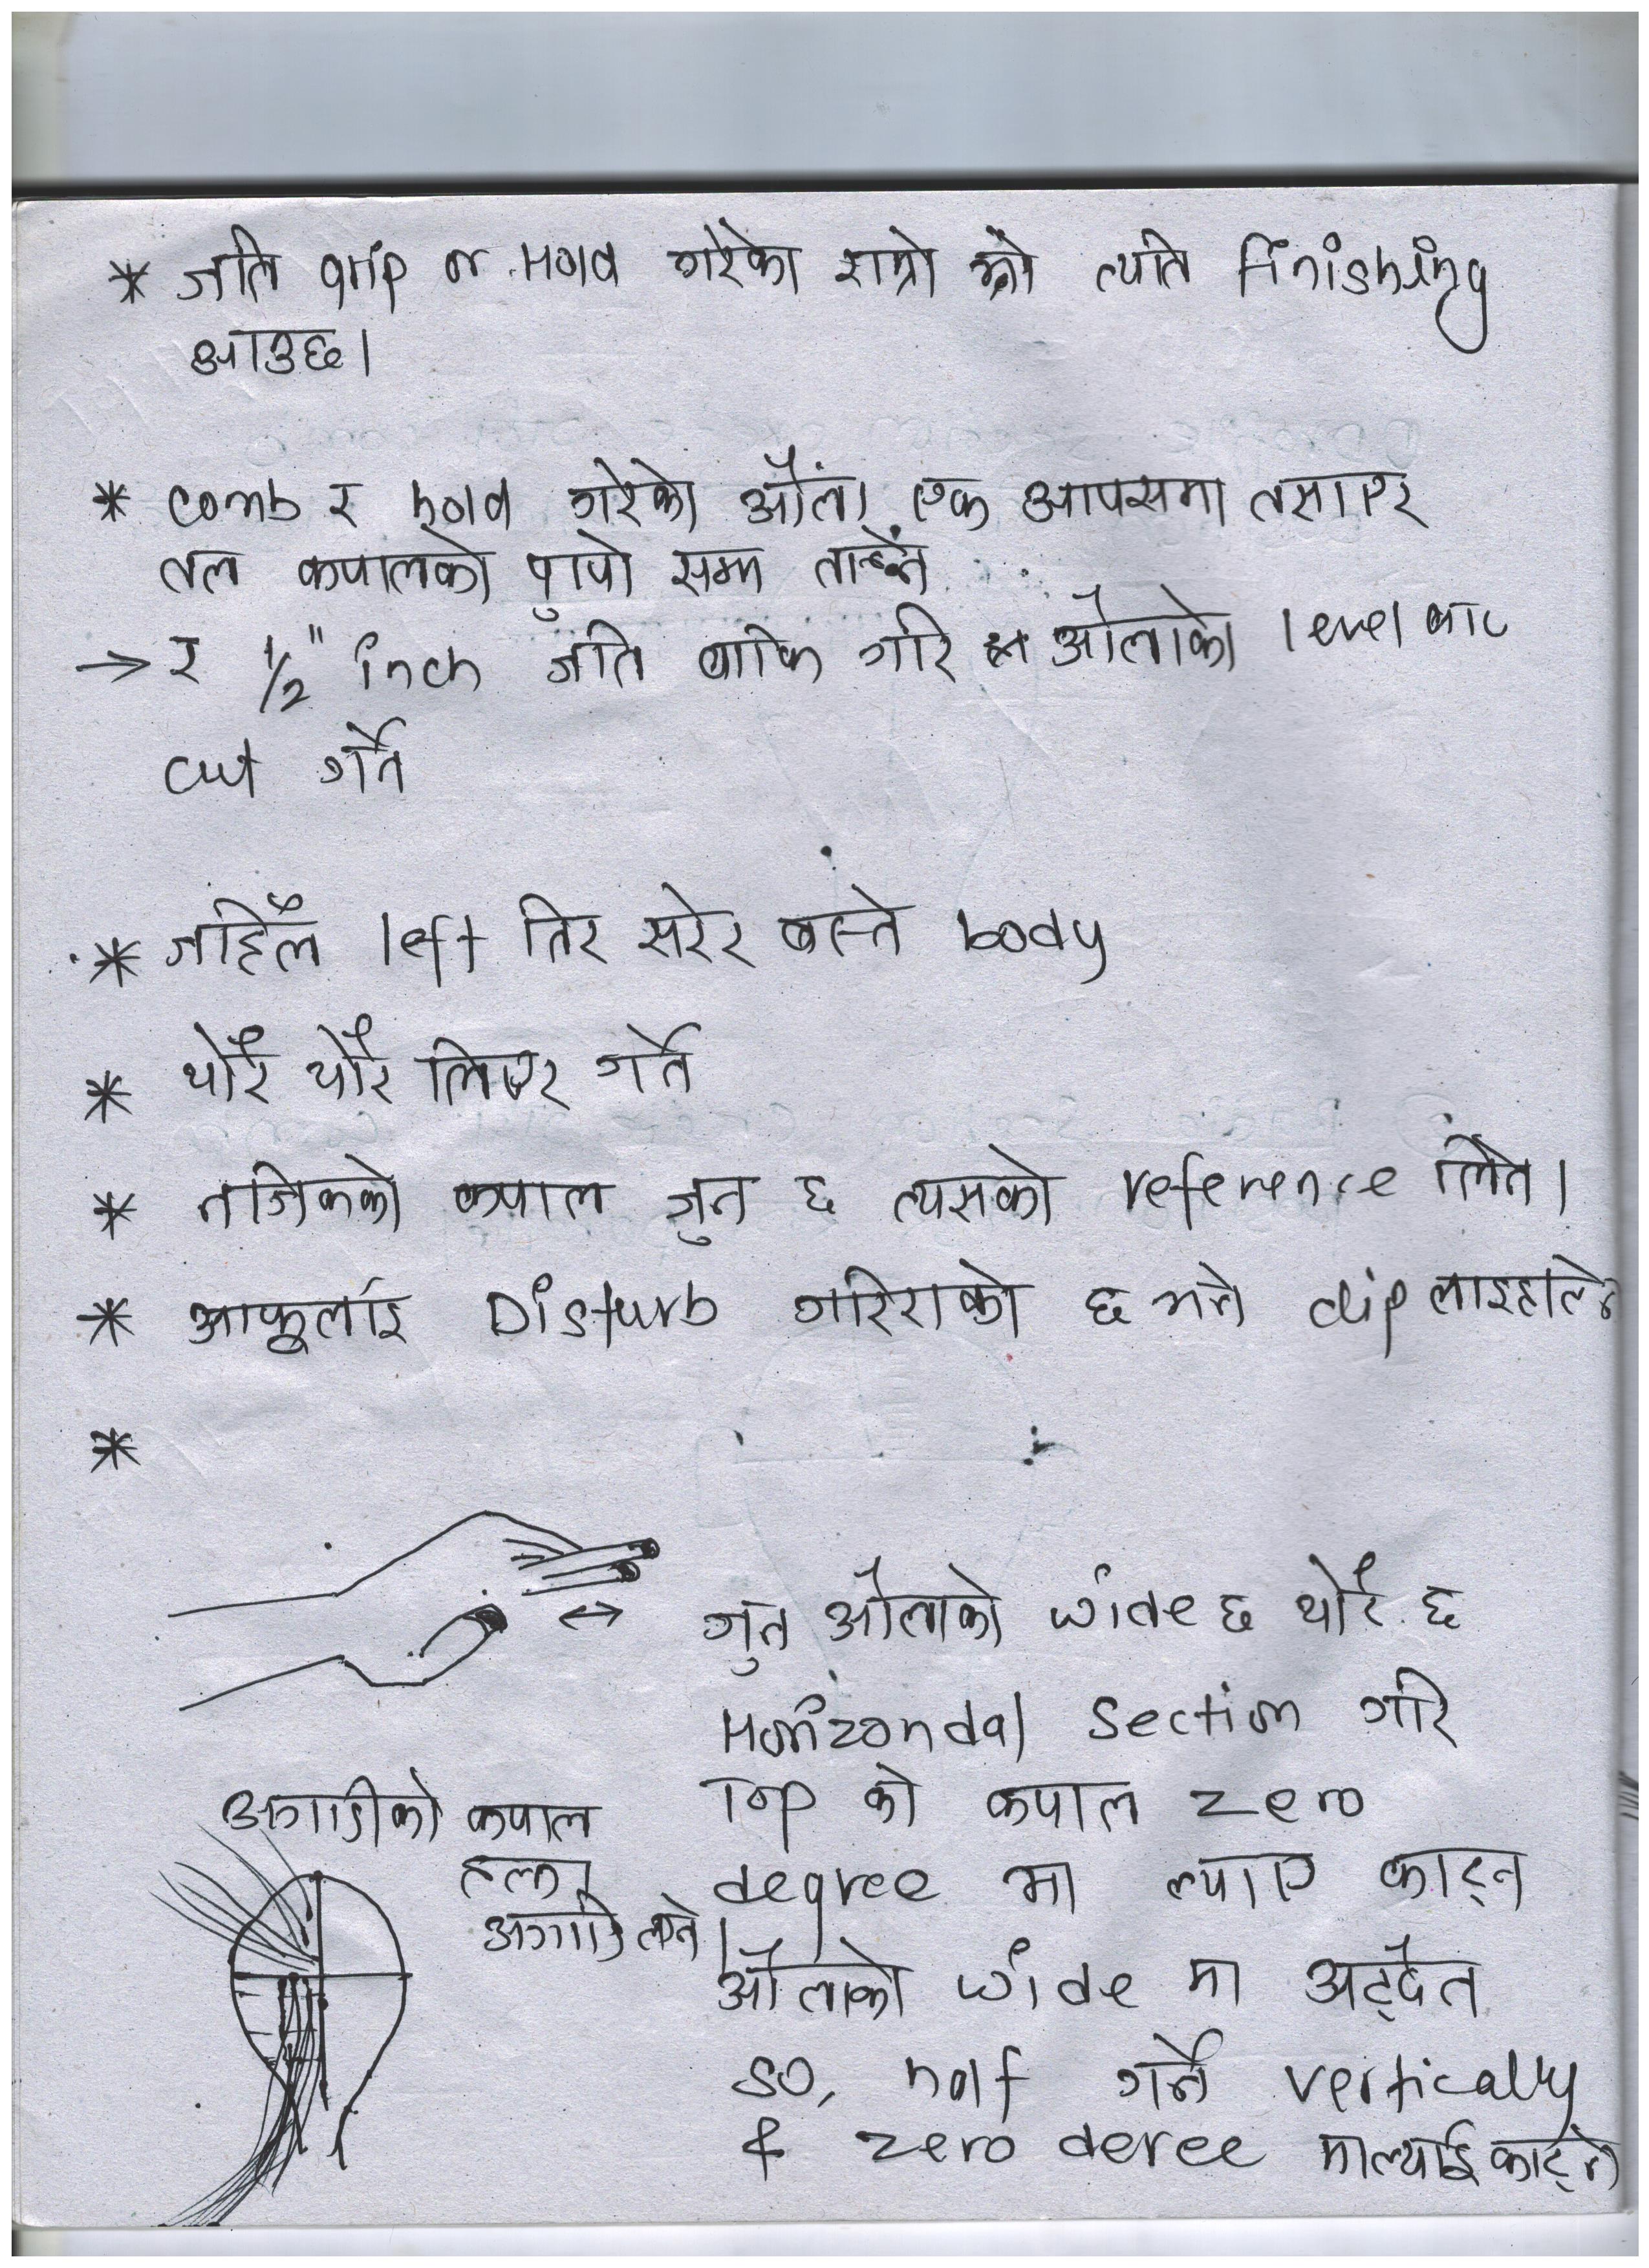 * जति grip or Hold गरेको राम्रो भयो त्यति Finishing
आउछ।
* comb र hold गरेको औंला एक आपसमा तसाएर
तल कपालको टुप्पो सम्म तान्ने
→ र 1/2" inch जति बाकि गरि औंलाको level बाट
cut गर्ने
* जहिलै left तिर सरेर बस्ने body
* थोरै थोरै लिएर गर्ने
* नजिकको कपाल जुन छ त्यसको reference लिने।
* आफूलाई Disturb गरिराको छ भने clip लाइहाल्ने
*
जुन औंलाको wide छ थोरै छ
Horizondal section गरि
Top को कपाल zero
degree मा ल्याए काट्न
औंलाको wide मा अट्दैन
so, half गर्ने vertically
& zero deree मा ल्याई काट्ने
अगाडीको कपाल
अगाडि